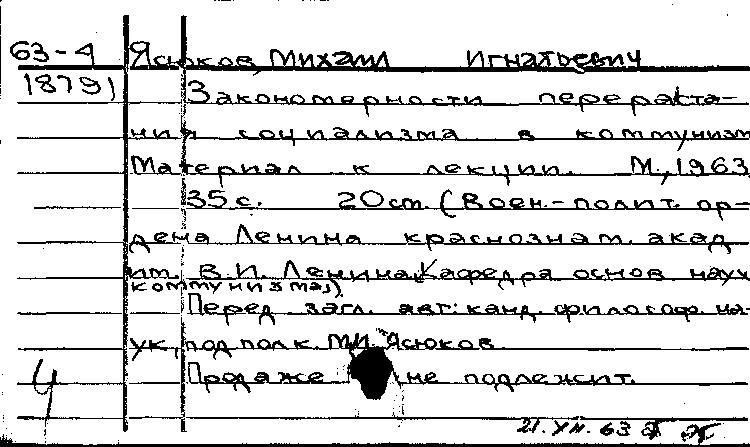 63-4 Ясюков, Михаил Игнатьевич
1879) Закономерности перераста-
ния социализма в коммунизм
Материал к лекции. М., 1963
35 с. 20 см. (Воен.-полит. ор-
дена Ленина краснознам. акад
им. В.И. Ленина. Кафедра основ науч
коммунизма)
Перед загл. авт: канд. философ. на-
ук, подполк. М.И. Ясюков
Продаже не подлежит.
21. XII. 63